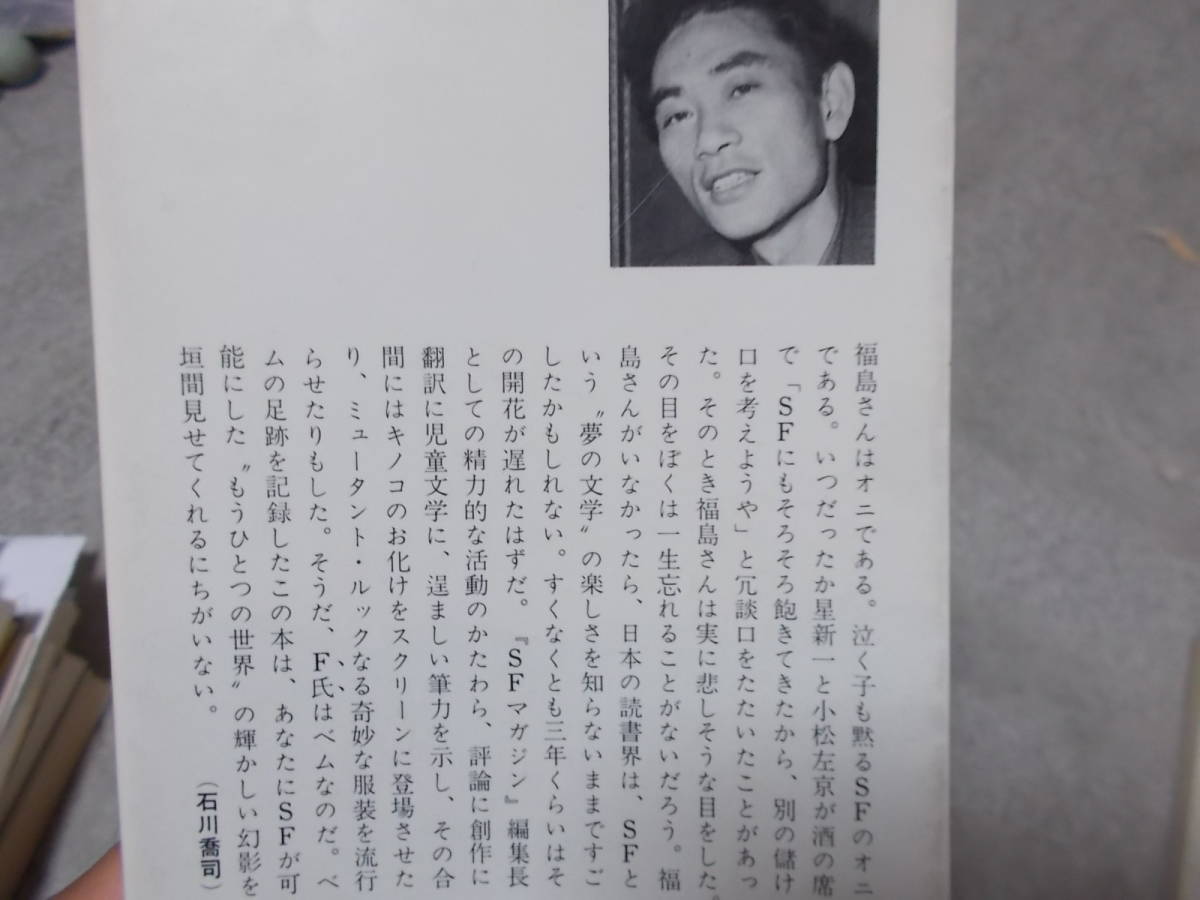 福島さんはオニである。泣く子も黙るSFのオニ
である。いつだったか星新一と小松左京が酒の席
で「SFにもそろそろ飽きてきたから、別の儲け
口を考えようや」と冗談口をたたいたことがあっ
た。そのとき福島さんは実に悲しそうな目をした。
その目をぼくは一生忘れることがないだろう。福
島さんがいなかったら、日本の読書界は、SFと
いう〝夢の文学〟の楽しさを知らないままですご
したかもしれない。すくなくとも三年くらいはそ
の開花が遅れたはずだ。『SFマガジン』編集長
としての精力的な活動のかたわら、評論に創作に
翻訳に児童文学に、逞ましい筆力を示し、その合
間にはキノコのお化けをスクリーンに登場させた
り、ミュータント・ルックなる奇妙な服装を流行
らせたりもした。そうだ、F氏はベムなのだ。ベ
ムの足跡を記録したこの本は、あなたにSFが可
能にした〝もうひとつの世界〟の輝かしい幻影を
垣間見せてくれるにちがいない。
（石川喬司）